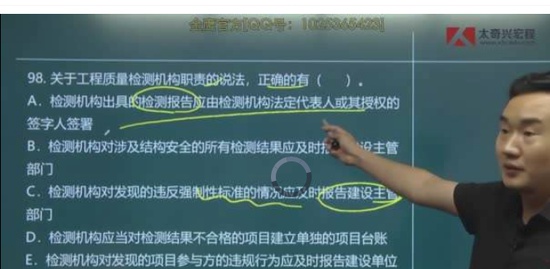 金鹰官方[QQ号：1025365423]
太奇兴宏程
98. 关于工程质量检测机构职责的说法，正确的有（ ）。
A．检测机构出具的检测报告应由检测机构法定代表人或其授权的
签字人签署
B．检测机构对涉及结构安全的所有检测结果应及时报 设主管
部门
C．检测机构对发现的违反强制性标准的情况应及时报告建设主管
部门
D．检测机构应当对检测结果不合格的项目建立单独的项目台账
E．检测机构对发现的项目参与方的违规行为应及时报告建设单位